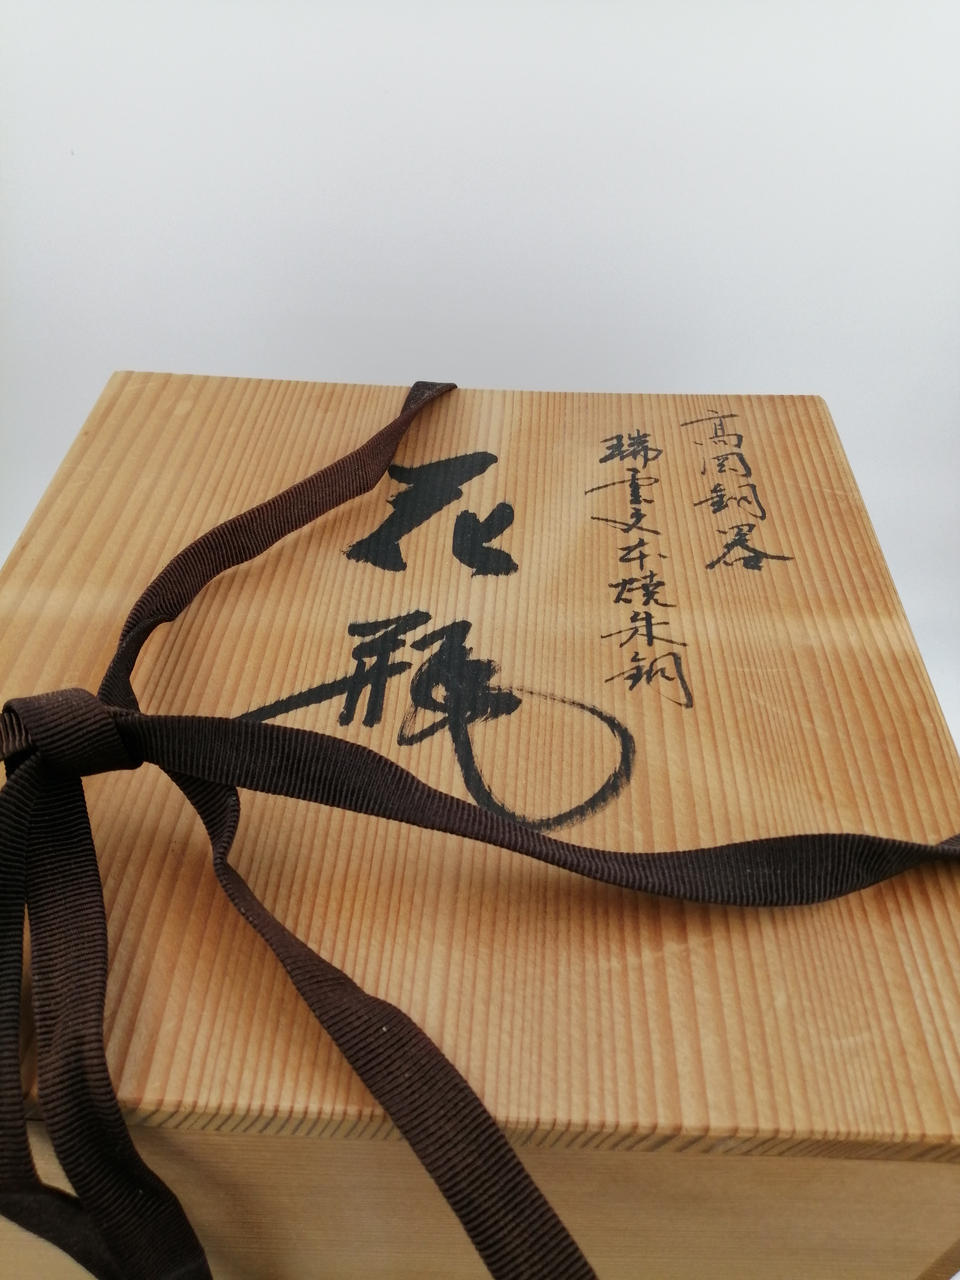 高岡銅器
瑞雲文本焼朱銅
花瓶